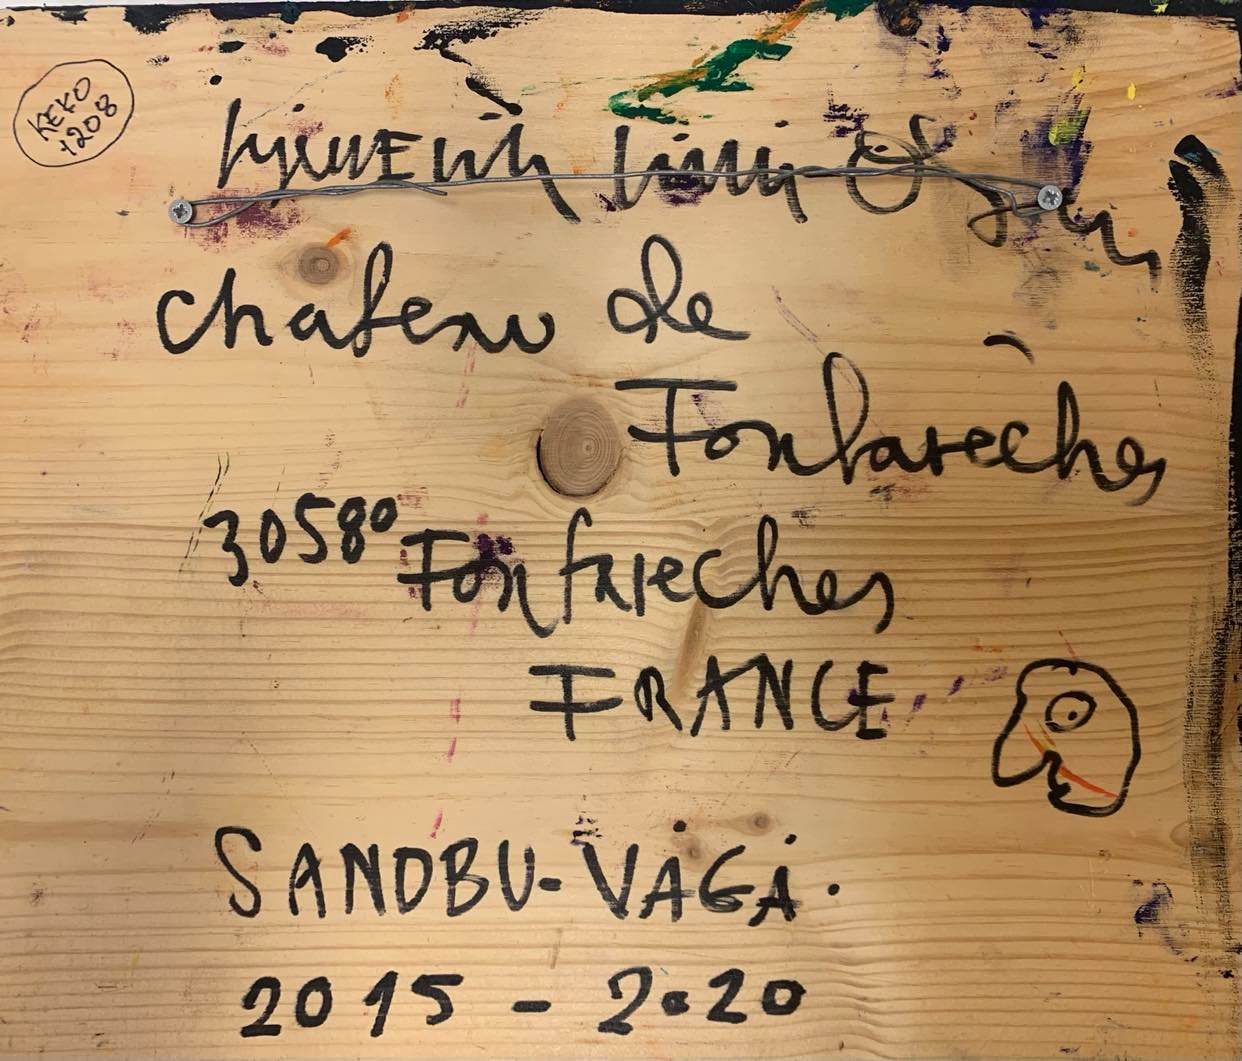 KEKO
1208
chateau de
Fontarèches
30580 Fontareches
FRANCE
SANDBU-VÅGÅ.
2015 - 2020